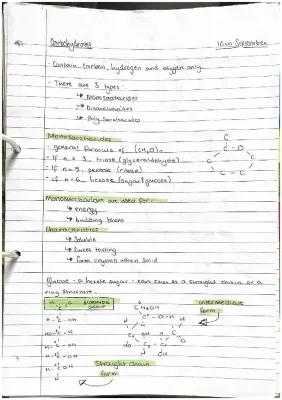 Carbohydrates
10th September
- Contain Carbon, hydrogen and oxygen only.
- There are 3 types:
↳ Monosaccharides
↳ Disaccharides
↳ Poly Saccharides
Monosaccharides
- general formula of (CH₂O)n
- If n = 3, triose (glyceraldehyde)
- If n = 5, pentose (ribose)
- If n = 6, hexose (sugar/glucose)
C
C - O
C C
C - C
Monosaccharides are used for:
↳ energy
↳ building blocks
Characteristics:
↳ Soluble
↳ Sweet tasting
↳ form crystals when solid
Glucose - a hexose sugar - can exist as a straight chain or a
ring structure.
intermediate
form
CH₂OH
Straight chain
form